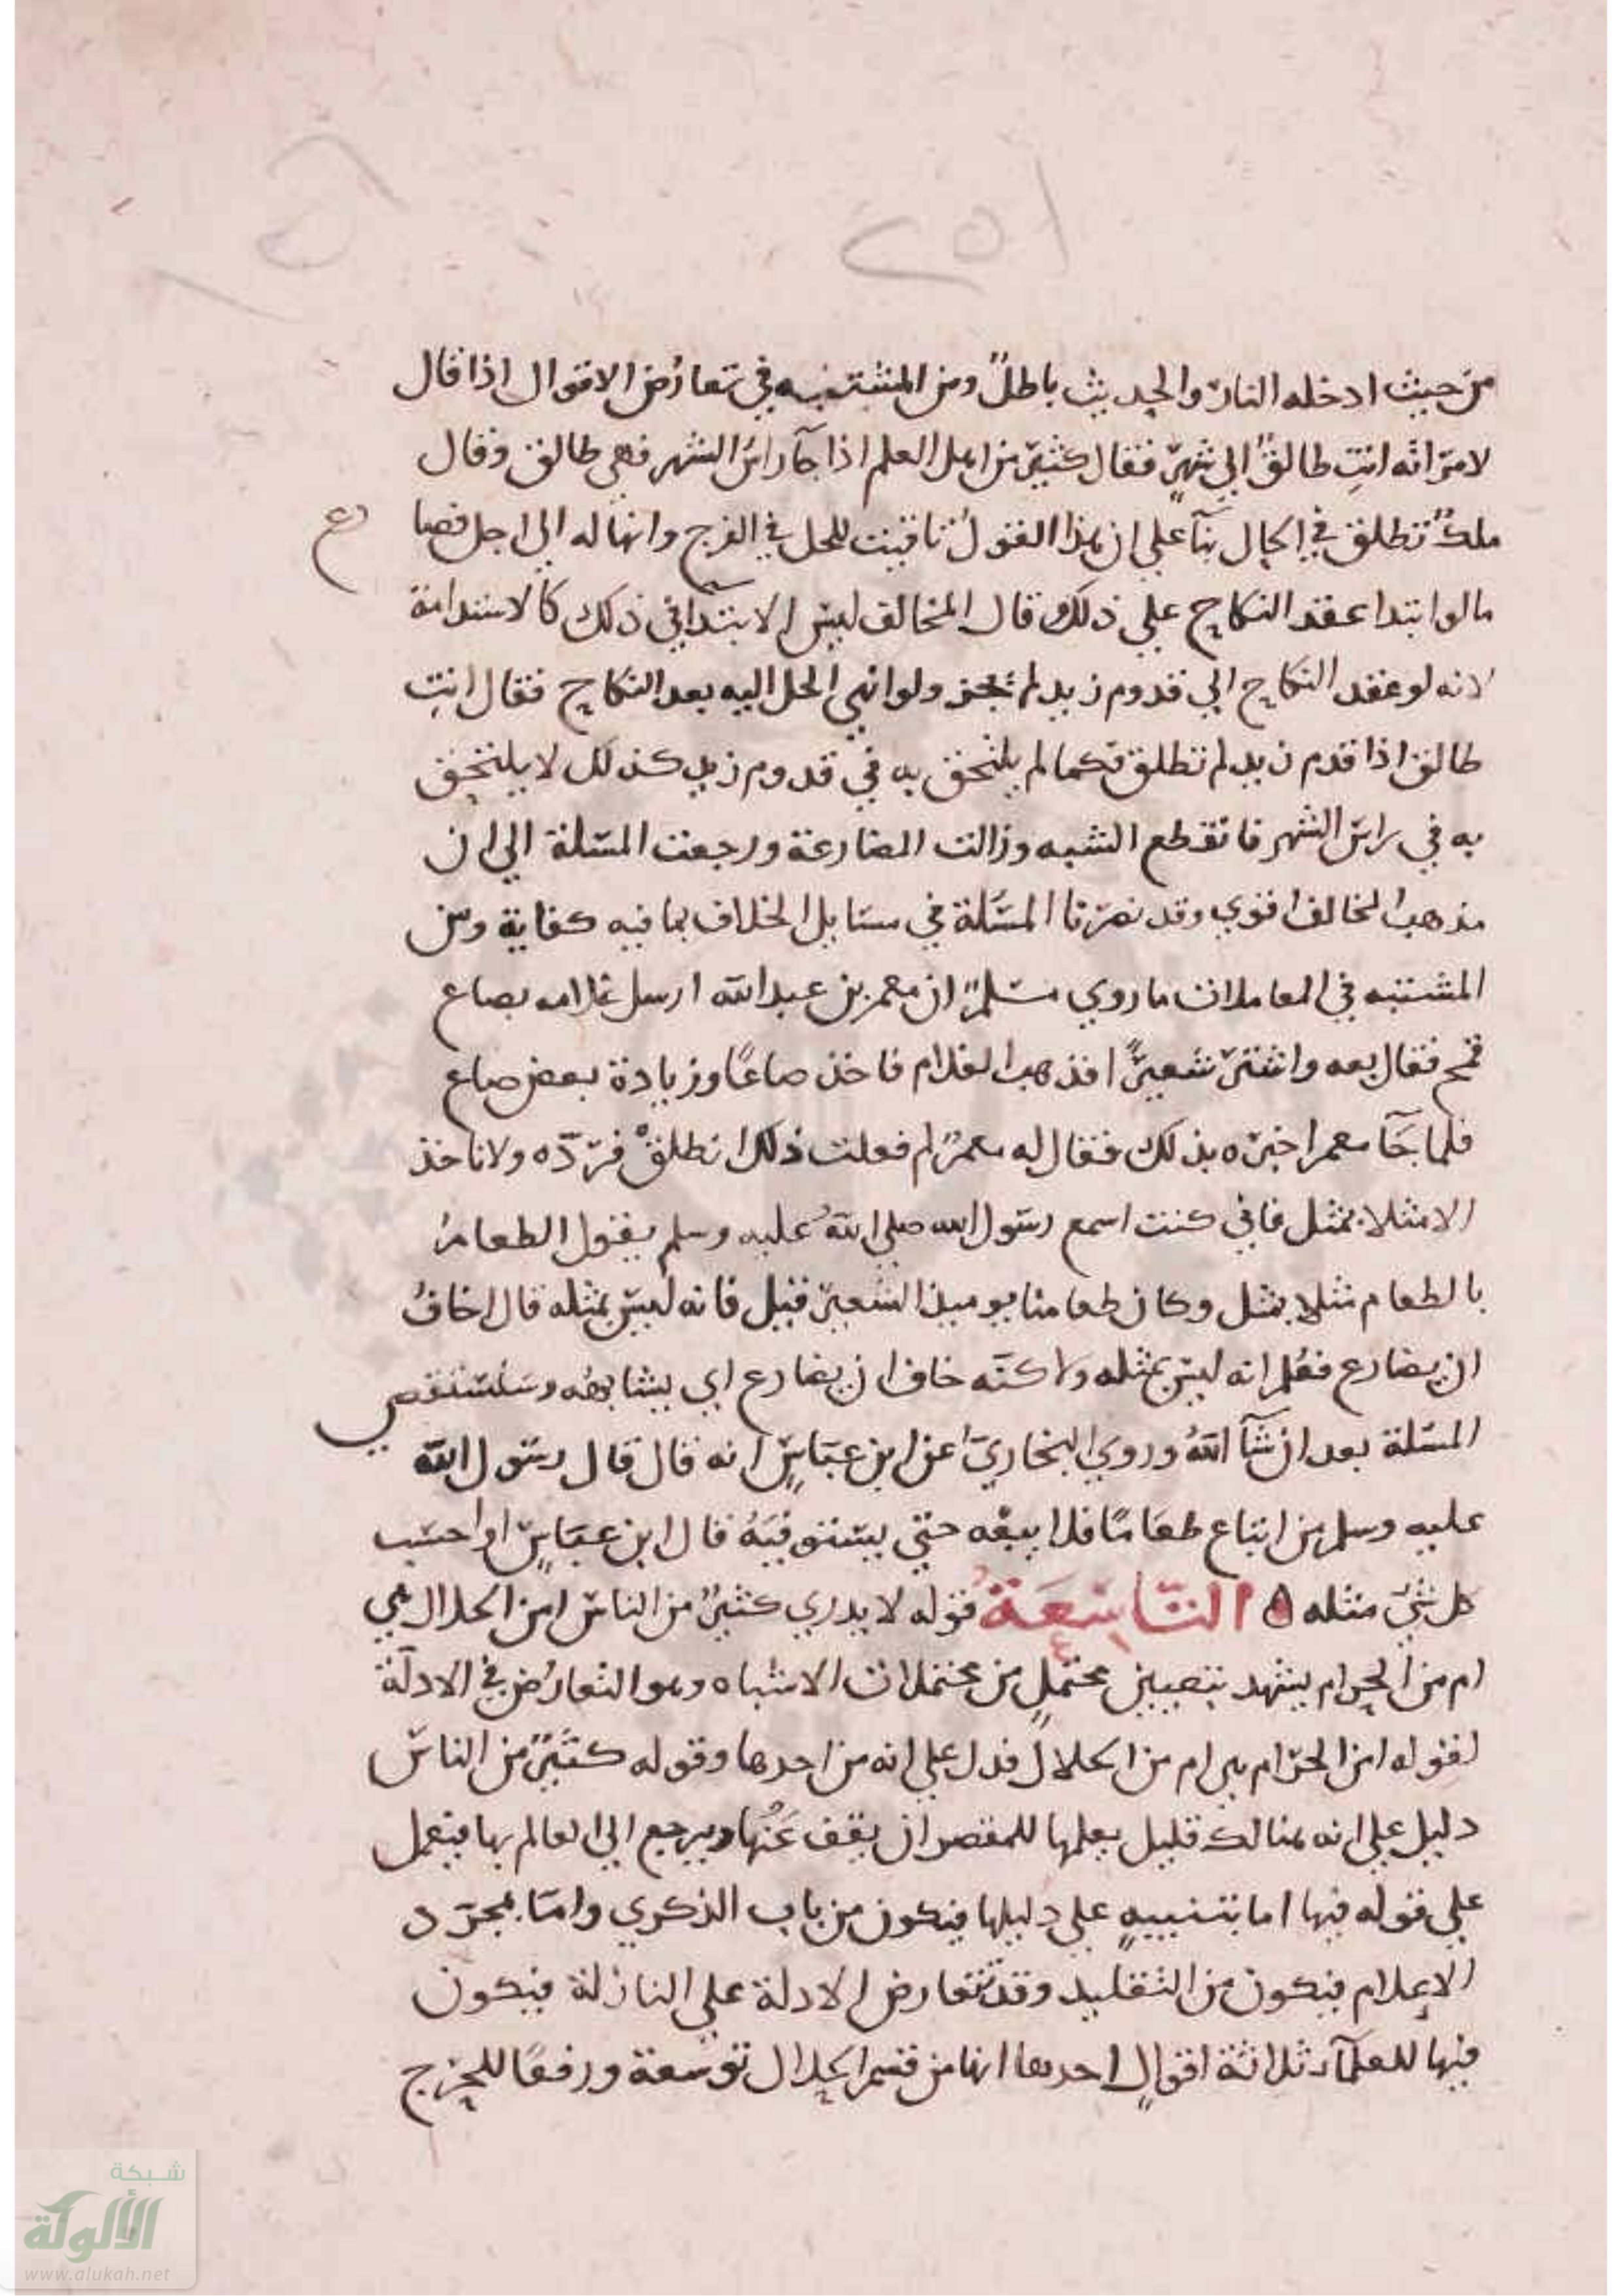 ١٥٢
من حيث ادخله النار والحديث باطل ومن المشتبه في تعارض الاقوال اذا قال
لامراته انت طالق الي شهر فقال كثير من اهل العلم اذا جآ راس الشهر فهي طالق وقال
ملك تطلق في الحال بنآ علي ان هذا القول تاقيت للحل في الفرج وانهاله الي اجل فصا
رع
مالو ابتدا عقد النكاح علي ذلك قال المخالف ليس الابتدا في ذلك كالاستدامة
لانه لو عقد النكاح الي قدوم زيد لم يجز ولو انهي الحل اليه بعد النكاح فقال انت
طالق اذا قدم زيد لم تطلق فكما لم يلتحق به في قدوم زيد كذلك لا يلتحق
به في راس الشهر فانقطع الشبه وزالت المضارعة ورجعت المسلة الي ان
مذهب المخالف اقوي وقد نصرنا المسئلة في مسايل الخلاف بما فيه كفاية ومن
المشتبه في المعاملات ما روي مسلم ان معمر بن عبد الله ارسل غلامه بصاع
قمح فقال بعه واشتر شعيرا فذهب الغلام فاخذ صاعًا وزيادة بعض صاع
فلما جآ معمرا اخبره بذلك فقال له معمر لم فعلت ذلك انطلق فرده ولا تاخذ
الا مثلا بمثل فاني كنت اسمع رسول الله صلي الله عليه وسلم يقول الطعام
بالطعام مثلا بمثل وكان طعامنا يوميذ الشعير فقيل فانه ليس بمثله قال اخاف
ان يضارع فعلم انه ليس بمثله ولاكنه خاف ان يضارع اي يشابهه وسنستقصي
المسلة بعد ان شآ الله وروي البخاري عن ابن عباس انه قال قال رسول الله
عليه وسلم من ابتاع طعامًا فلا يبعه حتي يستوفيه قال ابن عباس او احسب
كل شي مثله ه التاسعة قوله لا يدري كثير من الناس امن الحلال هي
ام من الحرام يشهد بتعيين محتمل من محتملات الاشتباه وهو التعارض في الادلة
لقوله امن الحرام هي ام من الحلال فدل علي انه من احدها وقوله كثير من الناس
دليل علي انه هنالك قليل يعلمها للمقصر ان يقف عنها ويرجع الي العالم بها فيعمل
علي قوله فيها اما بتنبيه علي دليلها فيكون من باب الذكري واما بمجرد
الاعلام فيكون من التقليد وقد تتعارض الادلة علي النازلة فيكون
فيها للعلمآ ثلاثة اقوال احدها انها من قسم الحلال توسعة ورفعًا للحرج
شبكة
الألوكة
www.alukah.net